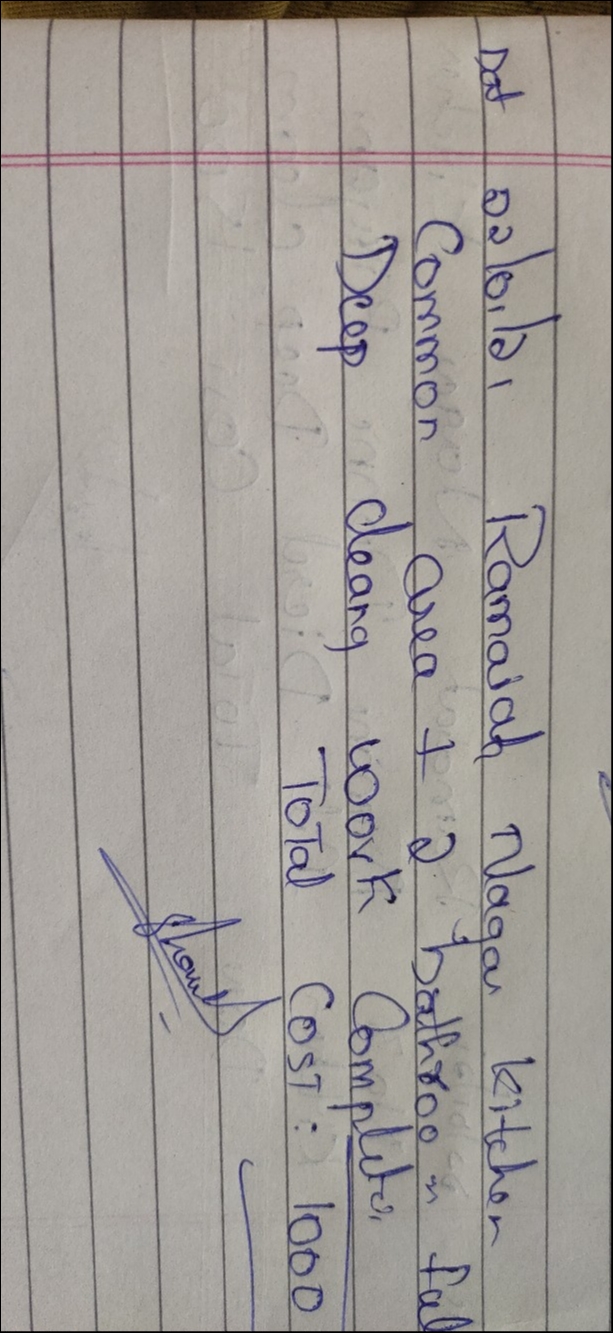 Dat 22/01/21 Ramaiah Nagar kitchen
Common area + 2 bathroom full
Deep cleang work Complete
Total Cost: 1000